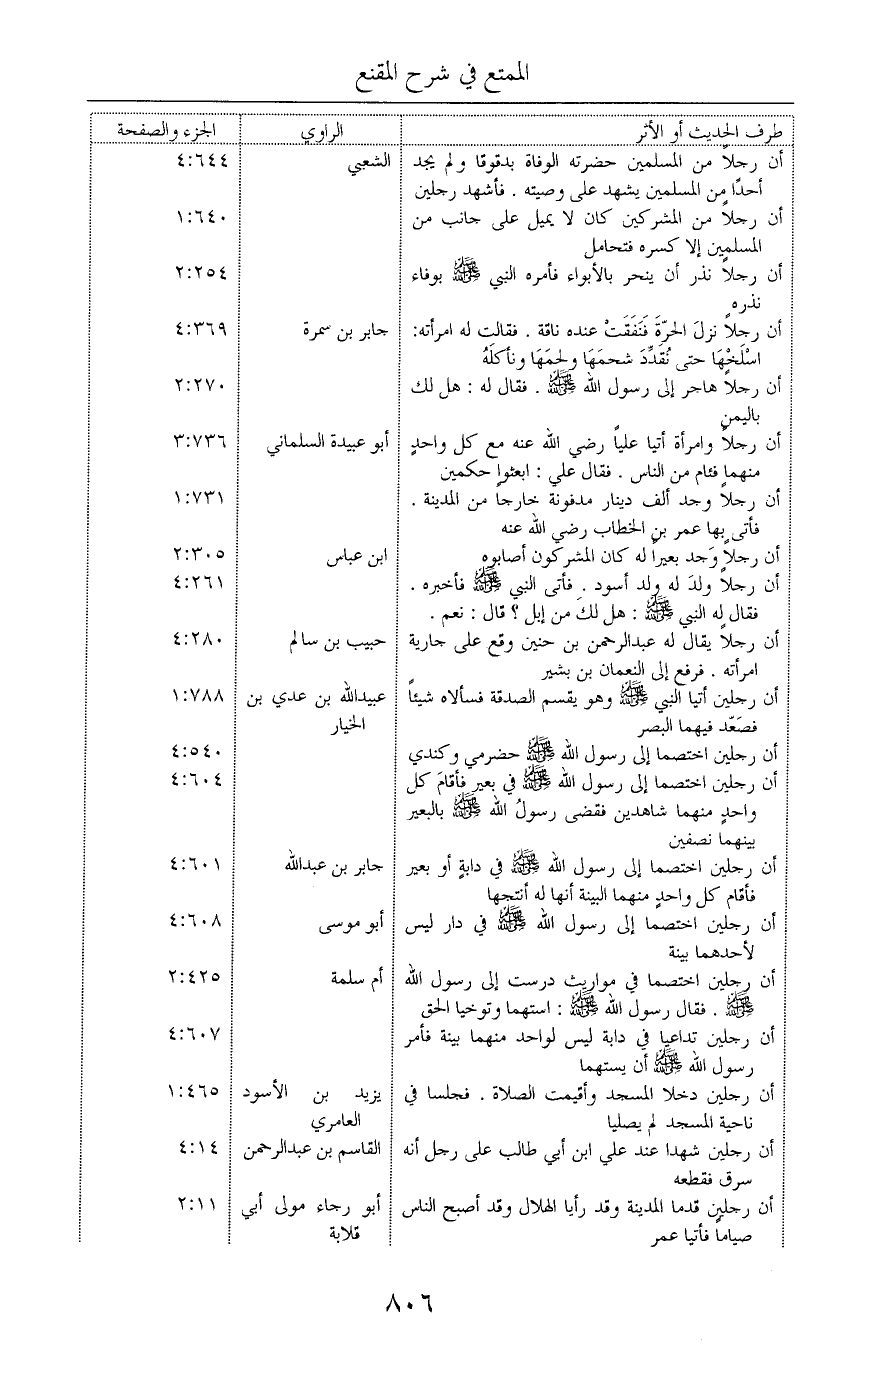 الممتع في شرح المقنع
طرف الحديث أو الأثر الراوي الجزء والصفحة
أن رجلاً من المسلمين حضرته الوفاة بدقوقا ولم يجد الشعبي ٤:٦٤٤
أحدًا من المسلمين يشهد على وصيته . فأشهد رجلين
أن رجلاً من المشركين كان لا يميل على جانب من ١:٦٤٠
المسلمين إلا كسره فتحامل
أن رجلاً نذر أن ينحر بالأبواء فأمره النبي ﷺ بوفاء ٢:٢٥٤
نذره
أن رجلاً نزلَ الحرّةَ فَنَفَقَتْ عنده ناقة . فقالت له امرأته: جابر بن سمرة ٤:٣٦٩
اسْلَخْهَا حتى نُقدِّدَ شحمَهَا ولحمَهَا ونأكلَهُ
أن رجلاً هاجر إلى رسول الله ﷺ . فقال له : هل لك ٢:٢٧٠
باليمن
أن رجلاً وامرأة أتيا علياً رضي الله عنه مع كل واحدٍ أبو عبيدة السلماني ٣:٧٣٦
منهما فئام من الناس . فقال علي : ابعثوا حكمين
أن رجلاً وجد ألف دينار مدفونة خارجاً من المدينة . ١:٧٣١
فأتى بها عمر بن الخطاب رضي الله عنه
أن رجلاً وَجد بعيراً له كان المشركون أصابوه ابن عباس ٢:٣٠٥
أن رجلاً ولدَ له ولد أسود . فأتى النبي ﷺ فأخبره . ٤:٢٦١
فقال له النبي ﷺ : هل لكَ من إبل ؟ قال : نعم .
أن رجلاً يقال له عبدالرحمن بن حنين وقع على جارية حبيب بن سالم ٤:٢٨٠
امرأته . فرفع إلى النعمان بن بشير
أن رجلين أتيا النبي ﷺ وهو يقسم الصدقة فسألاه شيئاً عبيدالله بن عدي بن ١:٧٨٨
فصَعّد فيهما البصر الخيار
أن رجلين اختصما إلى رسول الله ﷺ حضرمي وكندي ٤:٥٤٠
أن رجلين اختصما إلى رسول الله ﷺ في بعير فأقامَ كل ٤:٦٠٤
واحدٍ منهما شاهدين فقضى رسولُ الله ﷺ بالبعير
بينهما نصفين
أن رجلين اختصما إلى رسول الله ﷺ في دابةٍ أو بعير جابر بن عبدالله ٤:٦٠١
فأقام كل واحدٍ منهما البينة أنها له أنتجها
أن رجلين اختصما إلى رسول الله ﷺ في دار ليس أبو موسى ٤:٦٠٨
لأحدهما بينة
أن رجلين اختصما في مواريث درست إلى رسول الله أم سلمة ٢:٤٢٥
ﷺ . فقال رسول الله ﷺ : استهما وتوخيا الحق
أن رجلين تداعيا في دابة ليس لواحد منهما بينة فأمر ٤:٦٠٧
رسول الله ﷺ أن يستهما
أن رجلين دخلا المسجد وأقيمت الصلاة . فجلسا في يزيد بن الأسود ١:٤٦٥
ناحية المسجد لم يصليا العامري
أن رجلين شهدا عند علي ابن أبي طالب على رجل أنه القاسم بن عبدالرحمن ٤:١٤
سرق فقطعه
أن رجلين قدما المدينة وقد رأيا الهلال وقد أصبح الناس أبو رجاء مولى أبي ٢:١١
صياماً فأتيا عمر قلابة
٨٠٦